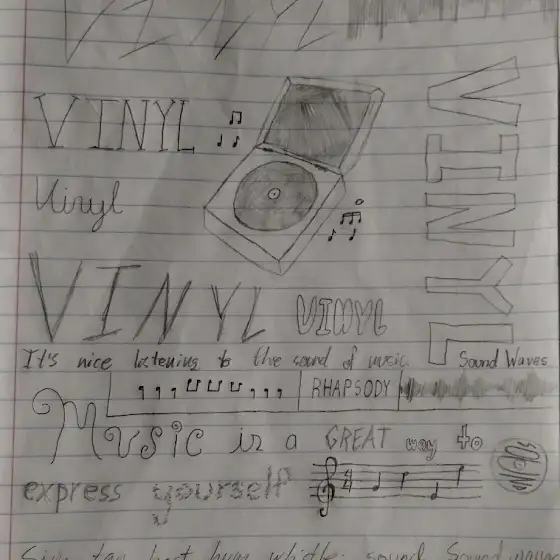 VINYL
VINYL
VINYL
Vinyl
VINYL VINYL
It's nice listening to the sound of music. Sound Waves
RHAPSODY
Music is a GREAT way to
express yourself
SOUND